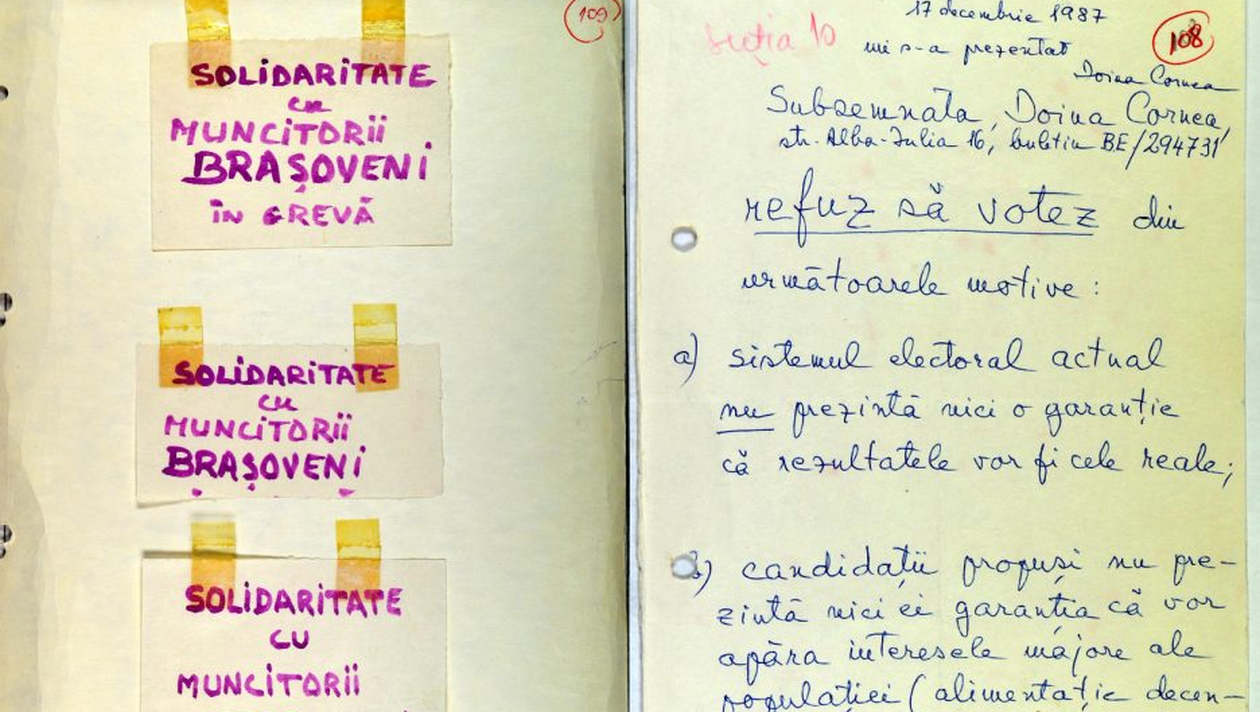 109
SOLIDARITATE
cu
MUNCITORII
BRAȘOVENI
ÎN GREVĂ
SOLIDARITATE
cu
MUNCITORII
BRAȘOVENI
SOLIDARITATE
CU
MUNCITORII
17 decembrie 1987
secția 10
108
mi s-a prezentat
Doina Cornea
Subsemnata, Doina Cornea,
str. Alba-Iulia 16, buletin BE/294731
refuz să votez din
următoarele motive:
a) sistemul electoral actual
nu prezintă nici o garanție
că rezultatele vor fi cele reale;
b) candidații propuși nu pre-
zintă nici ei garanția că vor
apăra interesele majore ale
populației (alimentație decen-